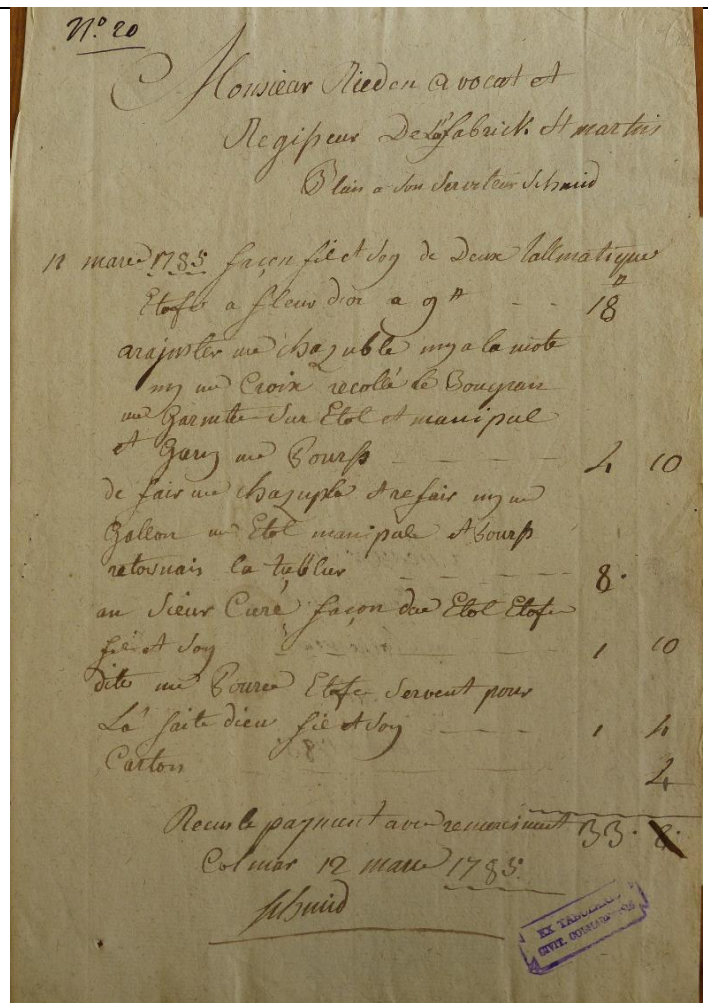 N.o 20
Monsieur Rieden avocat et
Regisseur De la fabrick St martin
Plais a son serviteur Schmid
12 marce 1785 façon fil et Soy de Deux Tallmatique
Etofe a fleur d'or a 9 tt - - 18 tt
arajuster une chazuble my a la mote
my une Croix recollé le Bougran
une Garnite Sur Etol et manipul
et Gary une Bours - - - 4 10
de fair une chazuple et refair my une
Gallon une Etol manipule et bours
retournais la tüblier - - - 8.
au Sieur Curé façon due Etol Etofe
fil et Soy - - - 1 10
dite une Bource Etofe Servent pour
La faite dieu fil et Soy - - - 1 4
Carton 4
Recus le payment avec remerciment 33. 8.
Colmar 12 marce 1785.
Schmid
EX TABULARIO
CIVIT. COLMARIENSIS